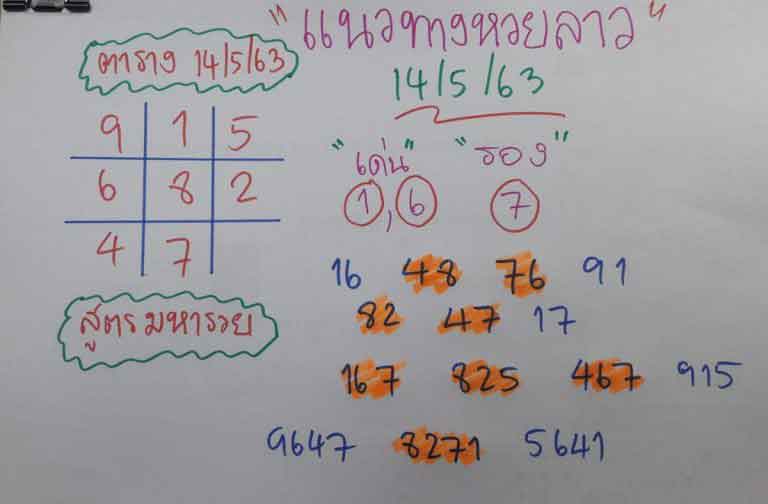 "แนวทางหวยลาว"
14/5/63
ตาราง 14/5/63
9 1 5
6 8 2
4 7
สูตรมหารวย
"เด่น" "รอง"
1,6 7
16 48 76 91
82 47 17
167 825 467 915
9647 8271 5641